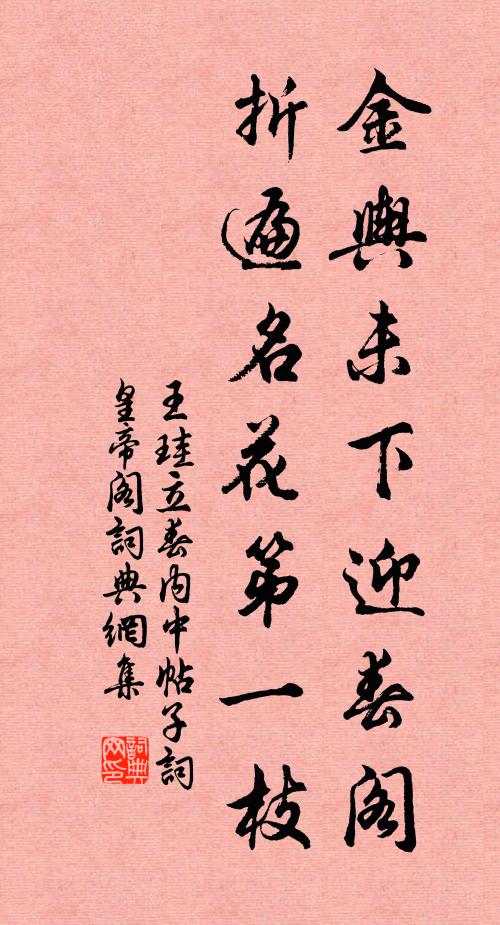 金輿未下迎春閣
折遍名花第一枝
王珪立春內中帖子詞
皇帝閣詞典網集
詞典網印